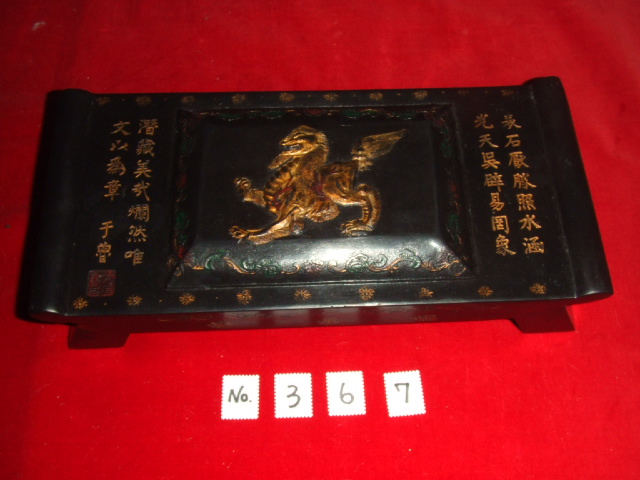 石厥照水涵
光天吳辟易罔象
潛藏美哉爛然唯
文以為章 于魯
No. 3 6 7